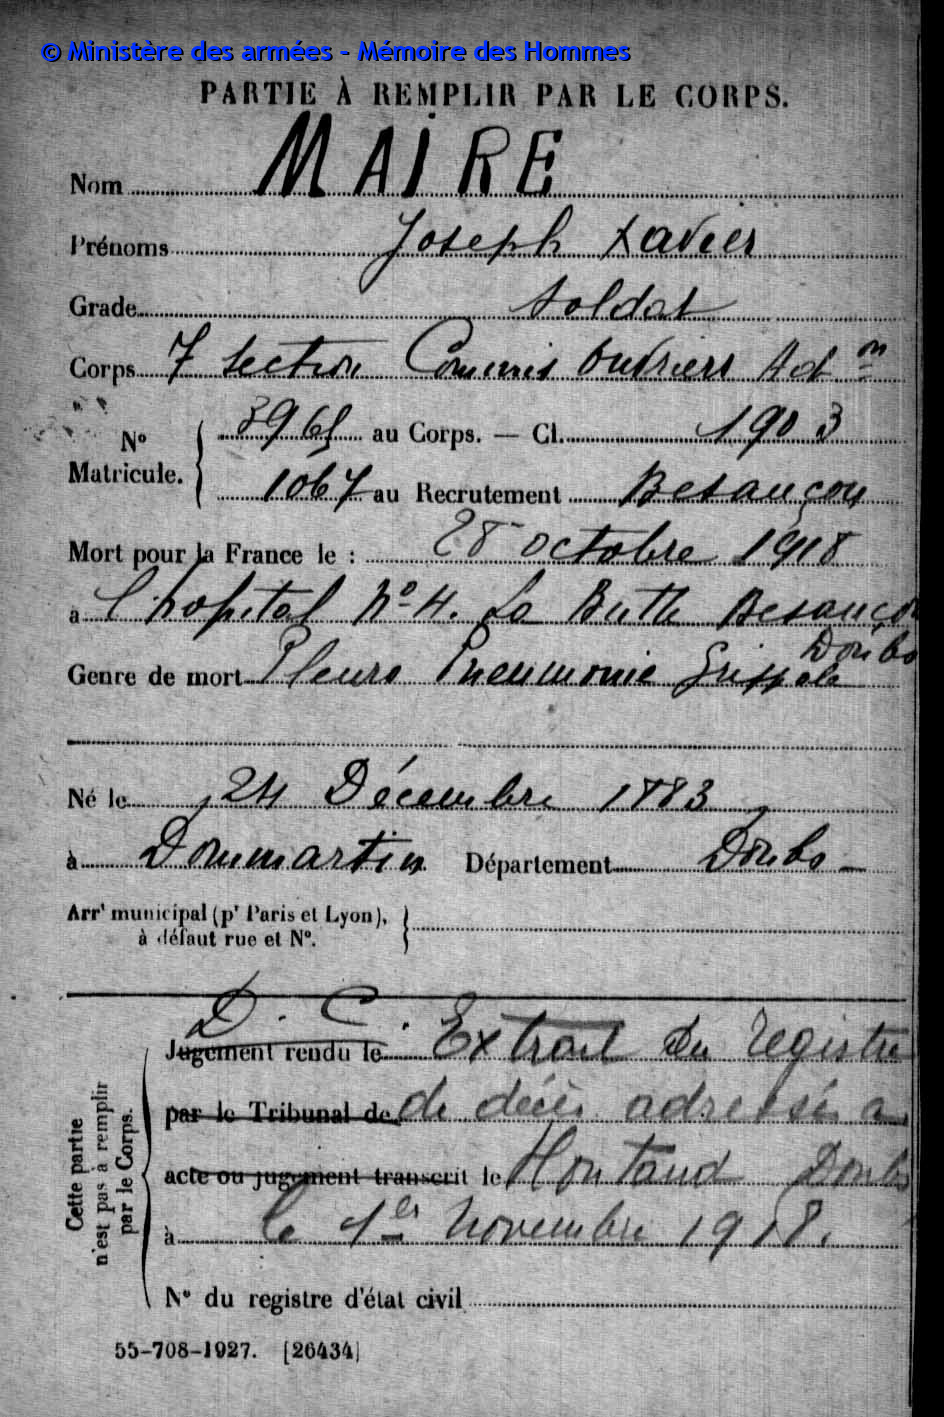 © Ministère des armées - Mémoire des Hommes
PARTIE À REMPLIR PAR LE CORPS.
Nom MAIRE
Prénoms Joseph Xavier
Grade Soldat
Corps 7 Section Commis Ouvriers Ad on
N° Matricule. 3965 au Corps. — Cl. 1903
1067 au Recrutement Besançon
Mort pour la France le : 28 octobre 1918
à l'hopital N° 4. La Butte Besançon
Doubs
Genre de mort Pleuro Pneumonie Grippale
Né le 24 Décembre 1883
à Dommartin Département Doubs
Arrt municipal (pr Paris et Lyon),
à défaut rue et N°.
Cette partie n'est pas à remplir par le Corps.
D. C.
Jugement rendu le Extrait du registre
par le Tribunal de de décès adressé a
acte ou jugement transcrit le Houtaud Doubs
à le 1er Novembre 1918.
N° du registre d'état civil
55-708-1927. [26434]